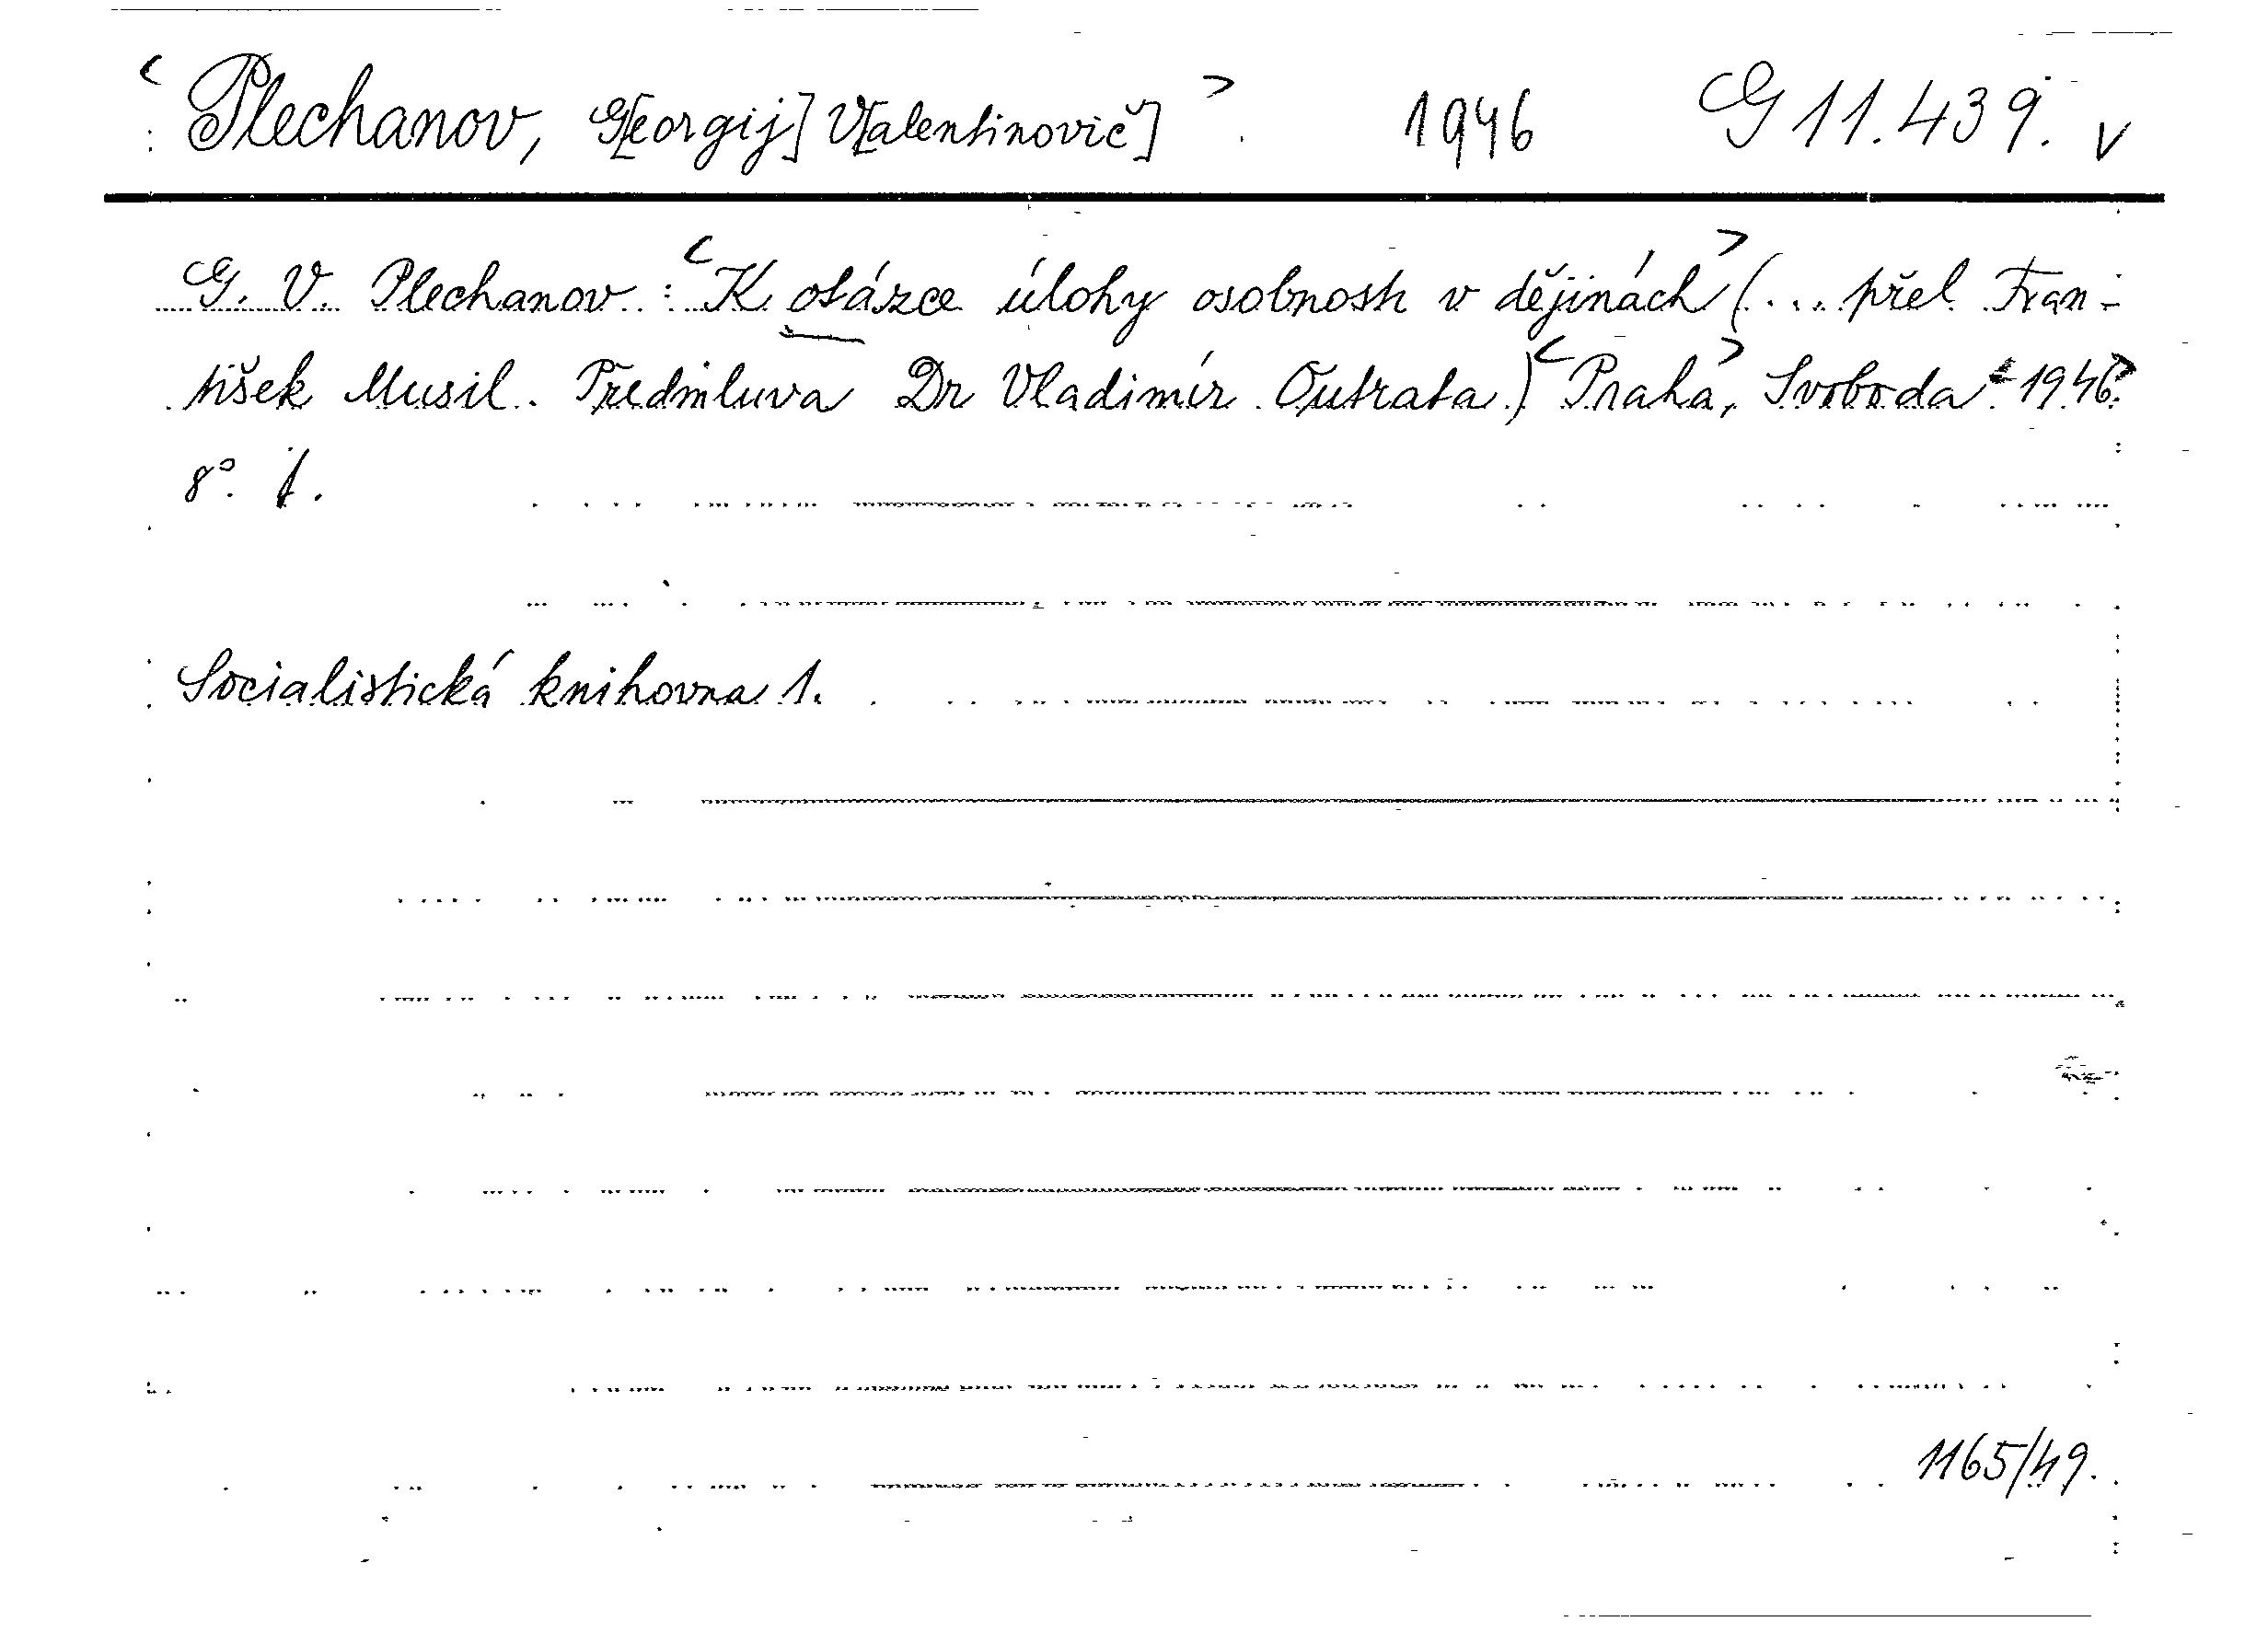 <Plechanov, G[eorgij] V[alentinovič]>. 1946 G 11.439. v
G. V. Plechanov: <K otázce úlohy osobnosti v dějinách> (... přel. Fran-
tišek Musil. Předmluva Dr Vladimír Outrata.) <Praha>, Svoboda <1946>.
8°.
Socialistická knihovna 1.
1165/49.